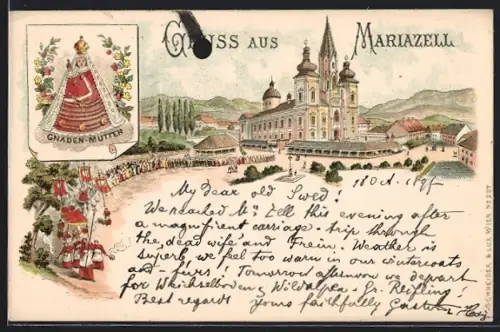 GRUSS AUS MARIAZELL
GNADEN-MUTTER
My dear old Swed!
18 Oct. 1897
We reached M. Zell this evening after
a magnificent carriage-trip through
the dead wife and Frein. Weather is
superb, we feel too warm in our wintercoats
and furs! Tomorrow afternoon we depart
for Weichselboden, Wildalpen - Gr. Reifling!
Best regards yours faithfully
SCHNEIDER & LUX, WIEN